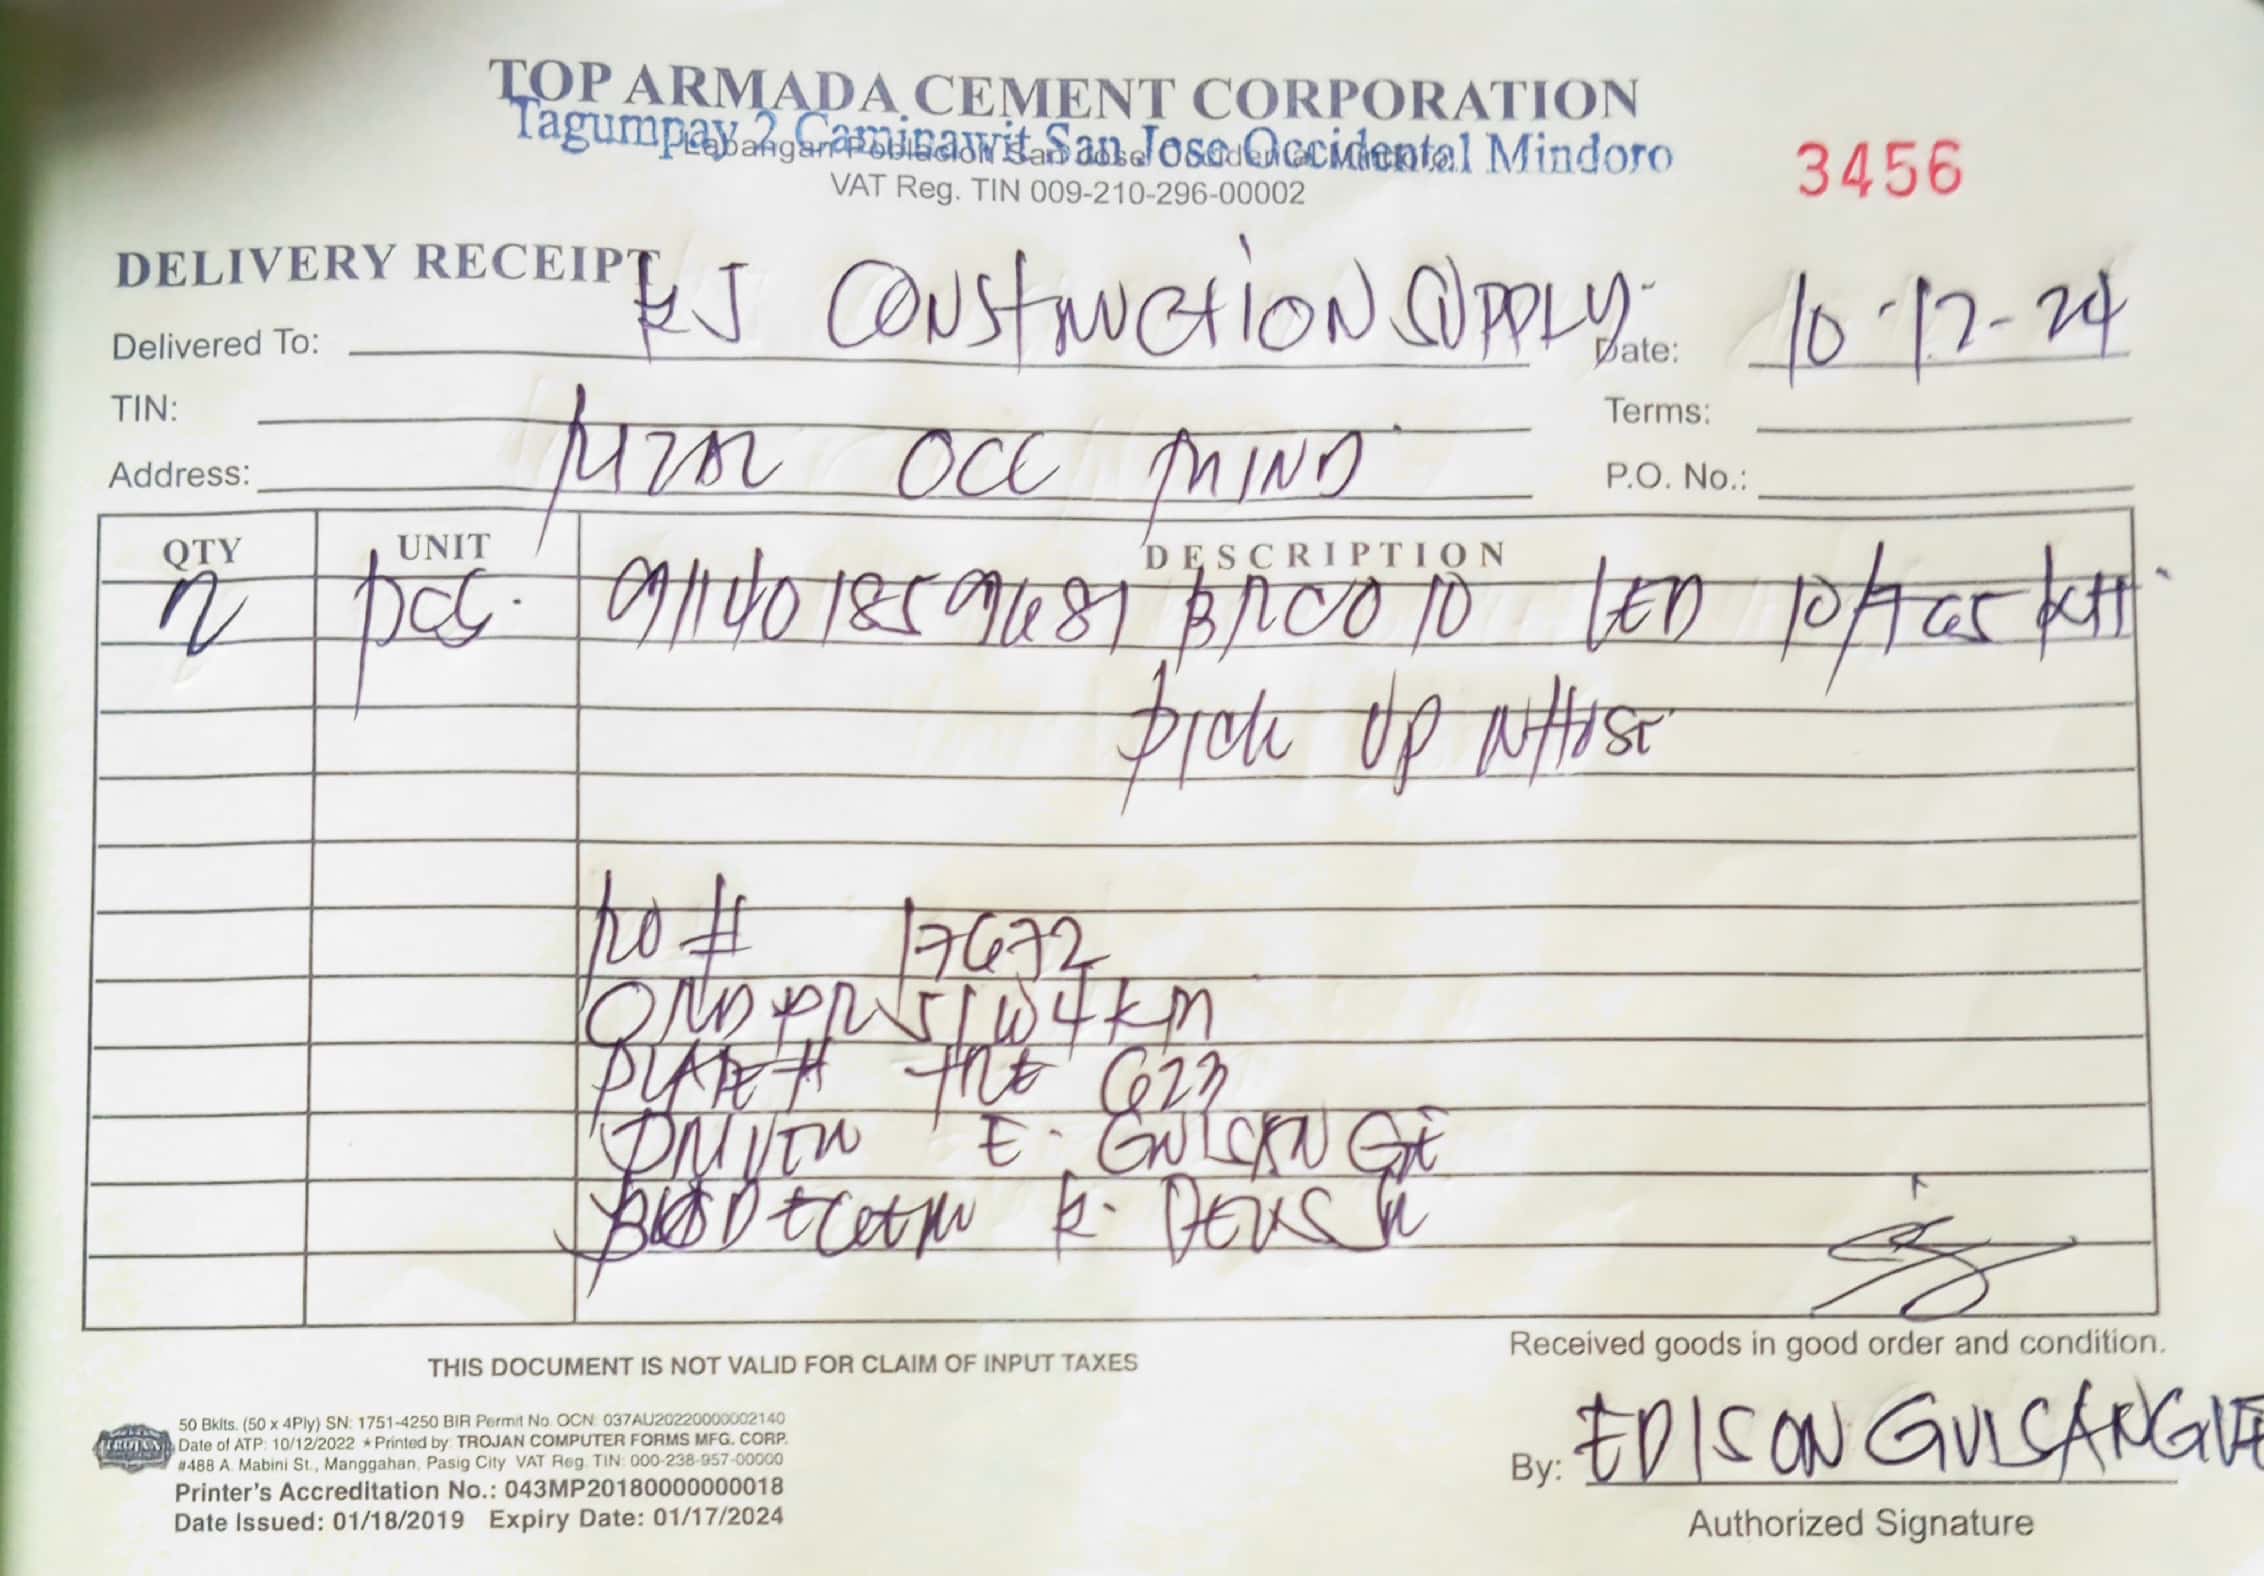 TOP ARMADA CEMENT CORPORATION
Tagumpay 2 Caminawit San Jose Occidental Mindoro
Labangan Poblacion San Jose Occidental Mindoro
VAT Reg. TIN 009-210-296-00002
3456
DELIVERY RECEIPT
Delivered To: KJ CONSTRUCTION SUPPLY Date: 10-17-24
TIN: Terms:
Address: RIZAL OCC MIND P.O. No.:
QTY UNIT DESCRIPTION
2 PCS. 911401859681 LED
PICK UP WHSE
PO # 17672
PLATE # 623
DRIVER E. GULSANGE
K.
Received goods in good order and condition.
THIS DOCUMENT IS NOT VALID FOR CLAIM OF INPUT TAXES
50 Bklts. (50 x 4Ply) SN: 1751-4250 BIR Permit No. OCN: 037AU20220000002140
Date of ATP: 10/12/2022 ★ Printed by: TROJAN COMPUTER FORMS MFG. CORP.
#488 A. Mabini St., Manggahan, Pasig City VAT Reg. TIN: 000-238-957-00000
Printer's Accreditation No.: 043MP20180000000018
Date Issued: 01/18/2019 Expiry Date: 01/17/2024
TROJAN
By: EDISON GULSANGUE
Authorized Signature